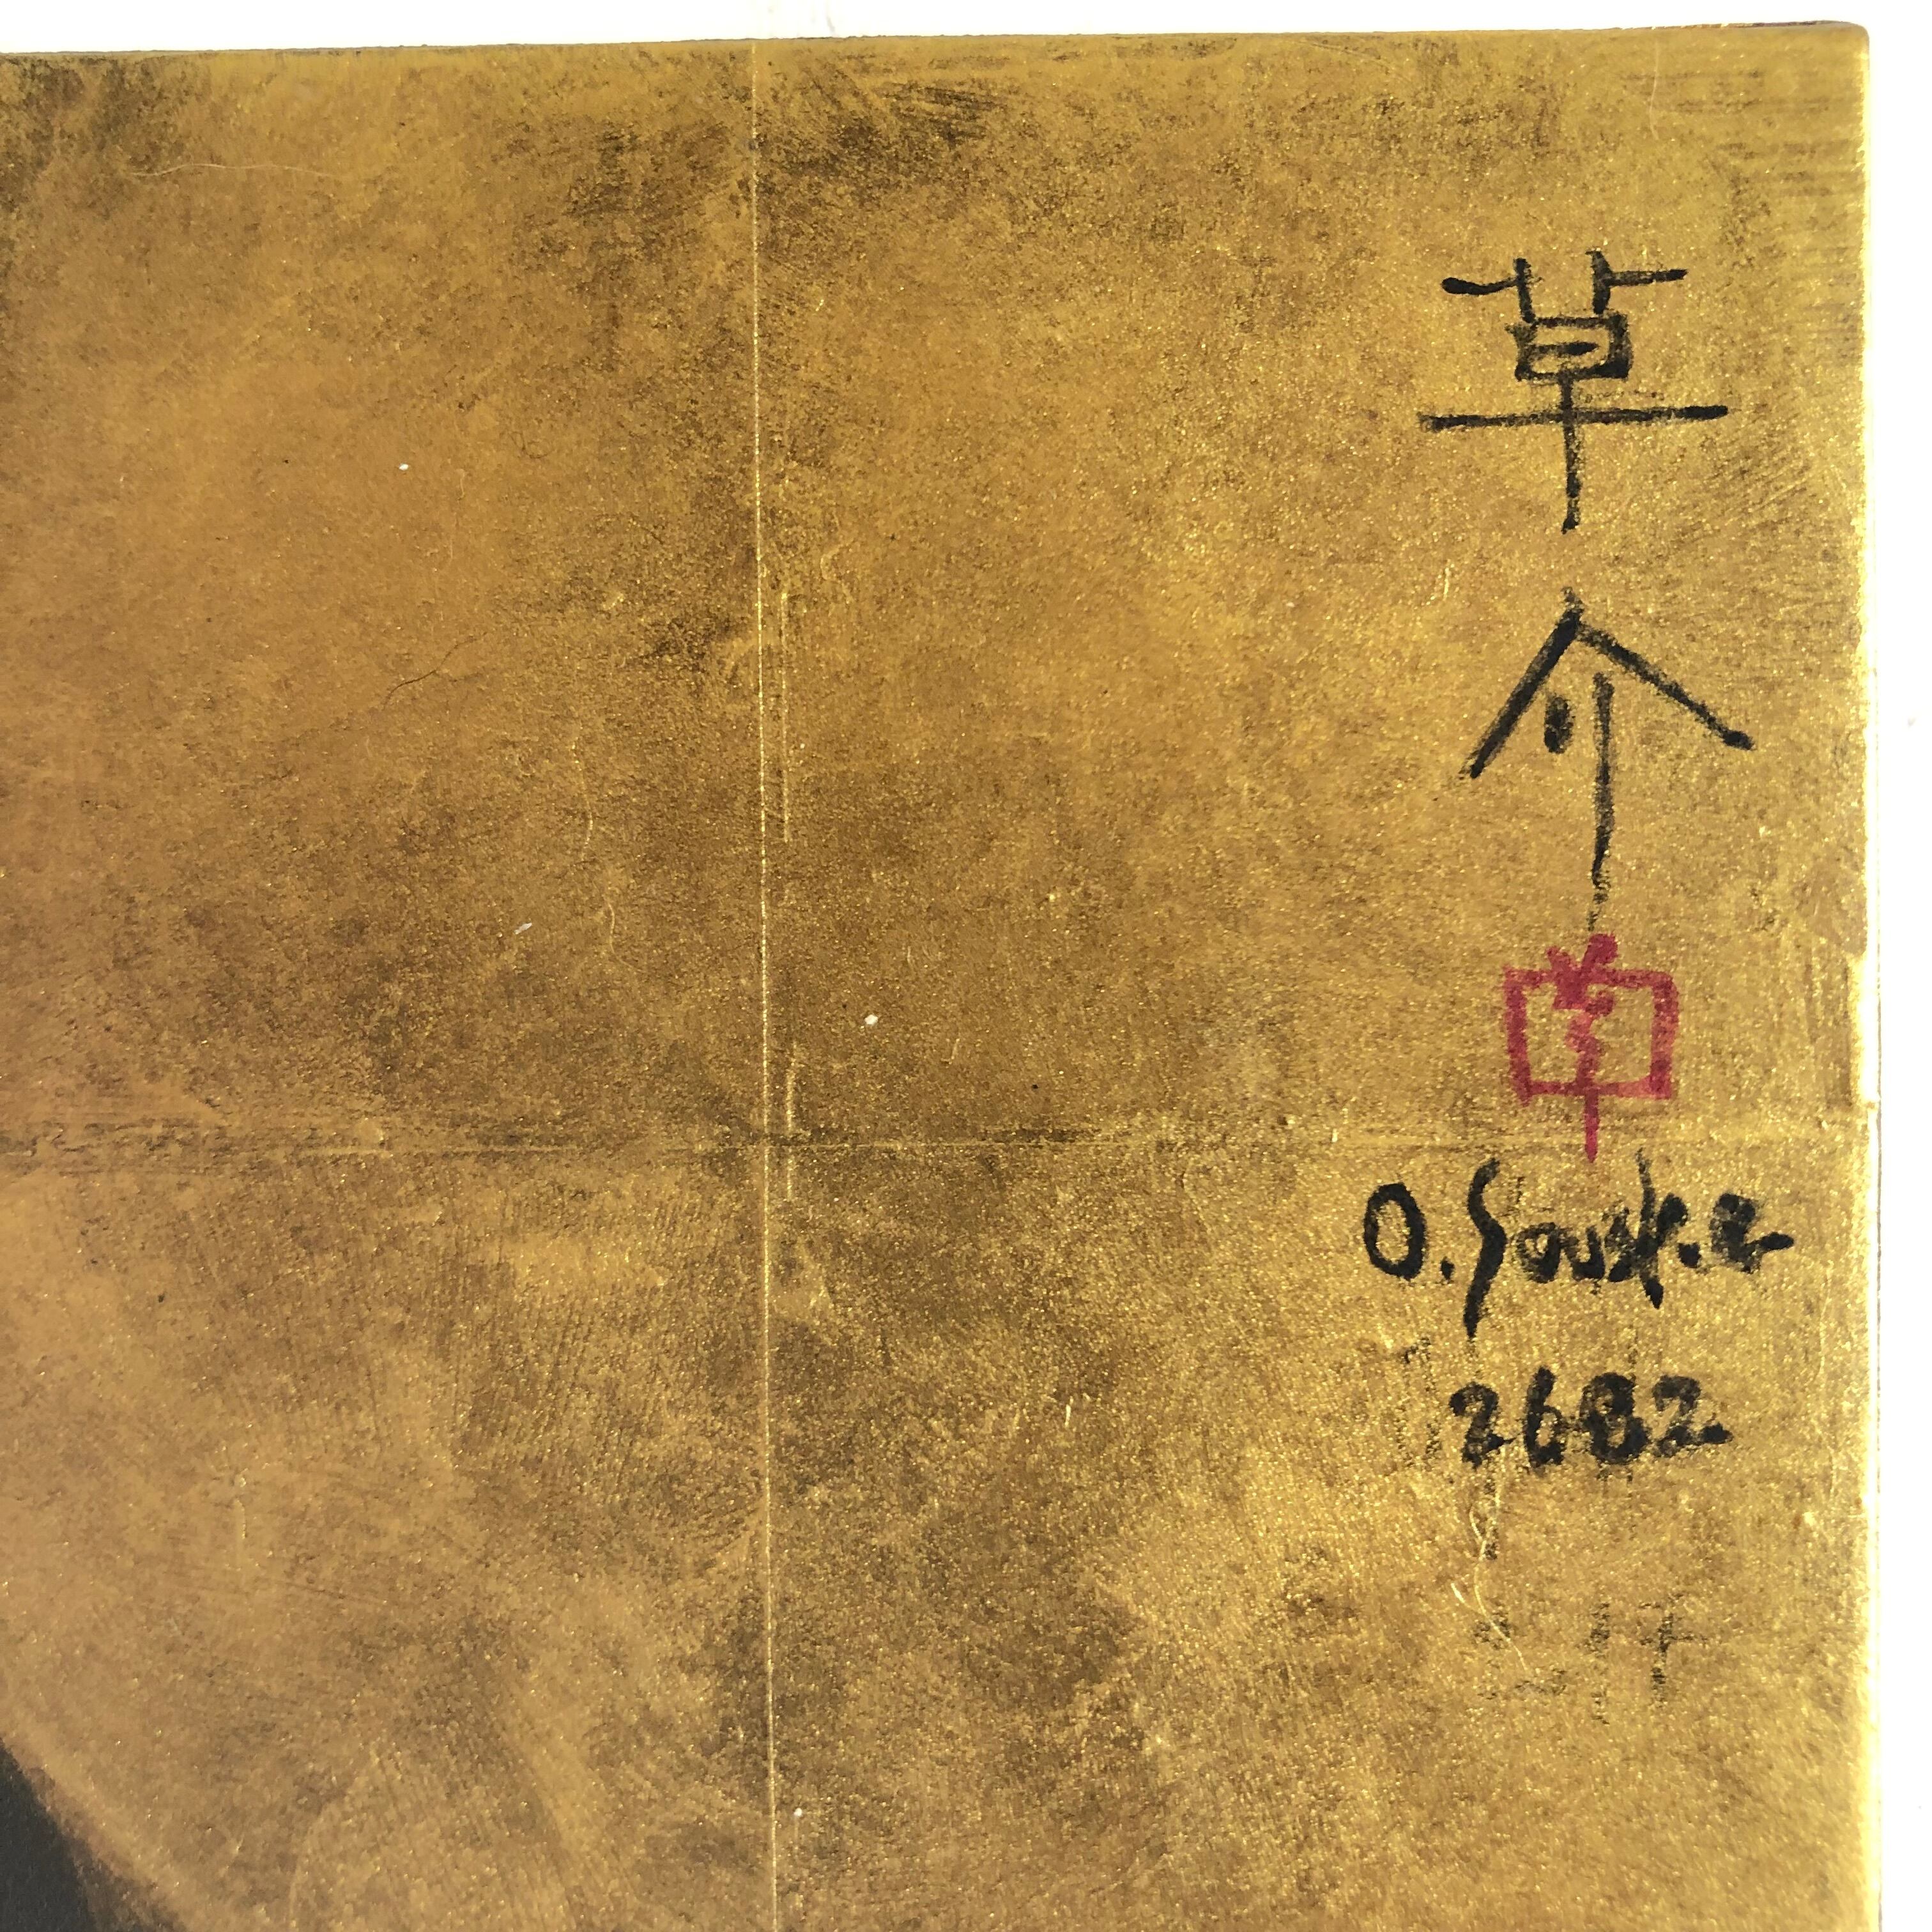 草
介
O. Souske
2682